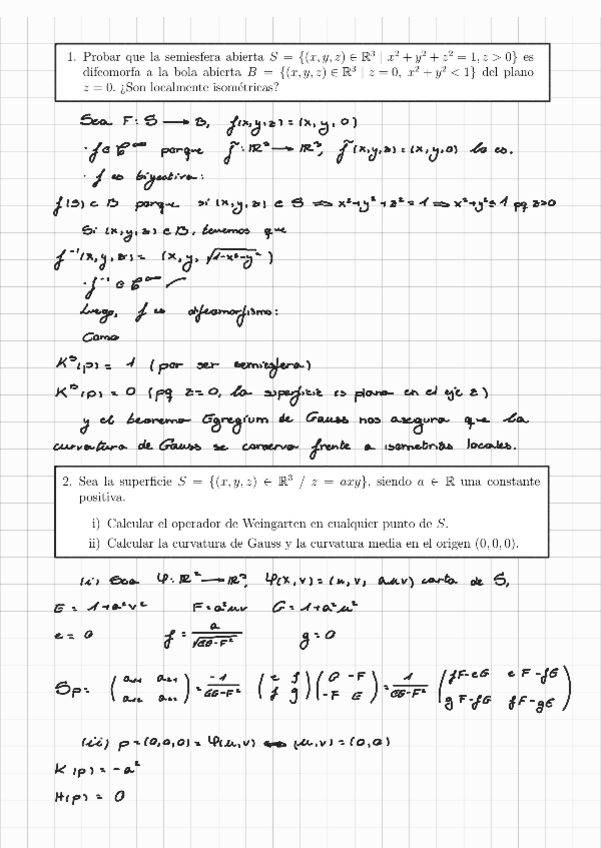 1. Probar que la semiesfera abierta S = {(x, y, z) ∈ ℝ³ | x² + y² + z² = 1, z > 0} es
difeomorfa a la bola abierta B = {(x, y, z) ∈ ℝ³ | z = 0, x² + y² < 1} del plano
z = 0. ¿Son localmente isométricas?
Sea F: S → B, f(x,y,z) = (x, y, 0)
· f ∈ C^∞ porque f̃: ℝ³ → ℝ³, f̃(x,y,z) = (x,y,0) lo es.
· f es biyectiva:
f(S) ⊂ B porque si (x,y,z) ∈ S ⇒ x²+y²+z² = 1 ⇒ x²+y² ≤ 1 pq z>0
Si (x,y,z) ∈ B, tenemos que
f⁻¹(x,y,z) = (x, y, √1-x²-y²)
· f⁻¹ ∈ C^∞ ✓
Luego, f es difeomorfismo:
Como
K^S(p) = 1 (por ser semiesfera)
K^B(p) = 0 (pq z=0, la superficie es plana en el eje z)
y el teorema Egregium de Gauss nos asegura que la
curvatura de Gauss se conserva frente a isometrías locales.
2. Sea la superficie S = {(x, y, z) ∈ ℝ³ / z = axy}, siendo a ∈ ℝ una constante
positiva.
i) Calcular el operador de Weingarten en cualquier punto de S.
ii) Calcular la curvatura de Gauss y la curvatura media en el origen (0, 0, 0).
(i) Sea φ: ℝ² → ℝ³, φ(x,v) = (u, v, auv) carta de S,
E = 1+a²v² F = a²uv G = 1+a²u²
e = 0 f = a/√EG-F² g = 0
Sp = (a₁₁ a₂₁ / a₁₂ a₂₂) = -1/EG-F² (e f / f g)(G -F / -F E) = 1/EG-F² (fF-eG eF-fE / gF-fG fF-gE)
(ii) p = (0,0,0) = φ(u,v) ⇔ (u,v) = (0,0)
K(p) = -a²
H(p) = 0